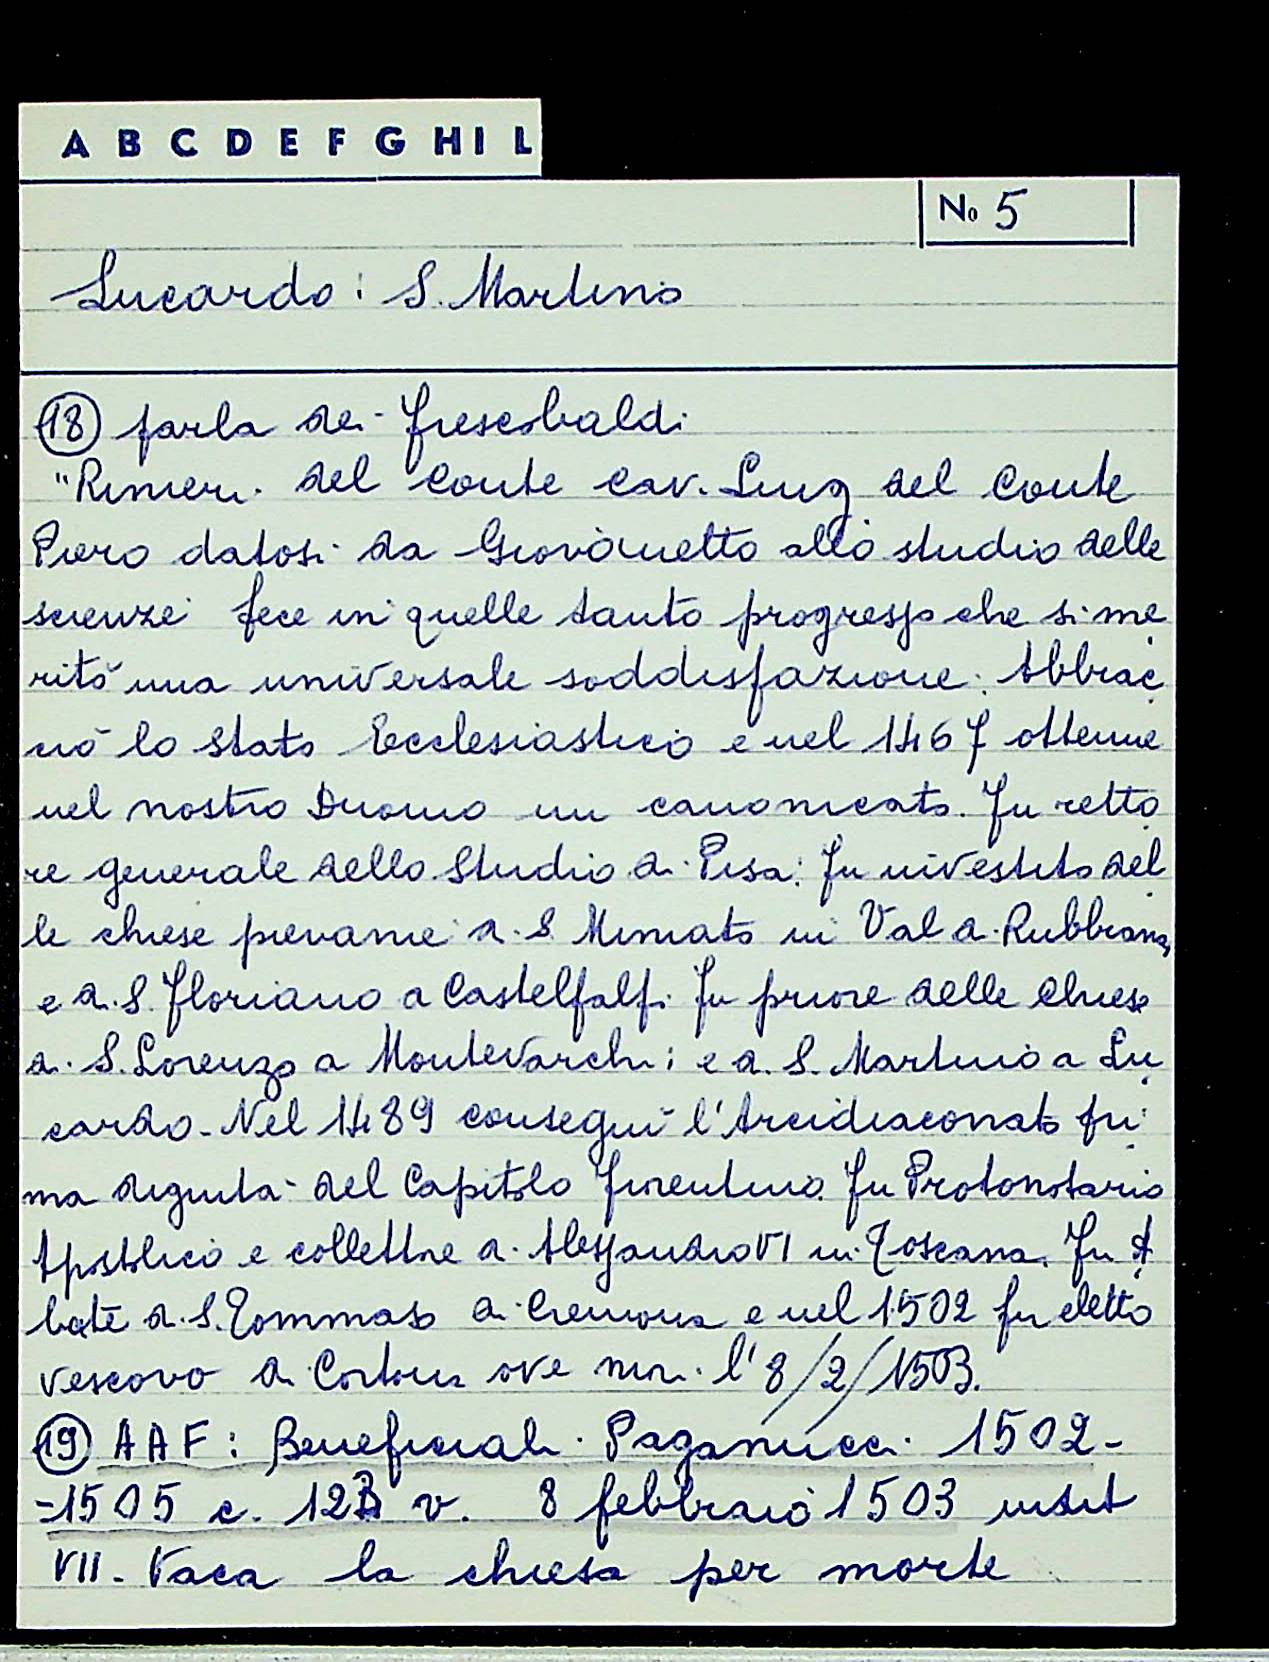 A B C D E F G H I L
No 5
Lucardo: S. Martino
18 parla dei Frescobaldi
"Rinieri del Conte Cav. Luig del Conte
Piero datosi da Giovanetto allo studio delle
scienze fece in quelle tanto progresso che si me
ritò una universale soddisfazione. Abbrac
ciò lo stato Ecclesiastico e nel 1467 ottenne
nel nostro Duomo un canonicato. Fu retto
re generale dello Studio di Pisa: fu investito del
le chiese pievanie di S. Miniato in Val di Rubbiana,
e di S. Floriano a Castelfalfi. Fu priore delle Chiese
di S. Lorenzo a Montevarchi; e di S. Martino a Lu
cardo. Nel 1489 conseguì l'Arcidiaconato pri
ma dignità del Capitolo fiorentino. Fu Protonotario
Apostolico e collettore di Alessandro VI in Toscana. Fu A
bate di S. Tommaso di Cremona e nel 1502 fu eletto
vescovo di Cortona ove mori l'8/2/1503.
19 AAF: Beneficiali Paganucci 1502-
=1505 c. v. 8 febbraio 1503
VII. Vaca la chiesa per morte